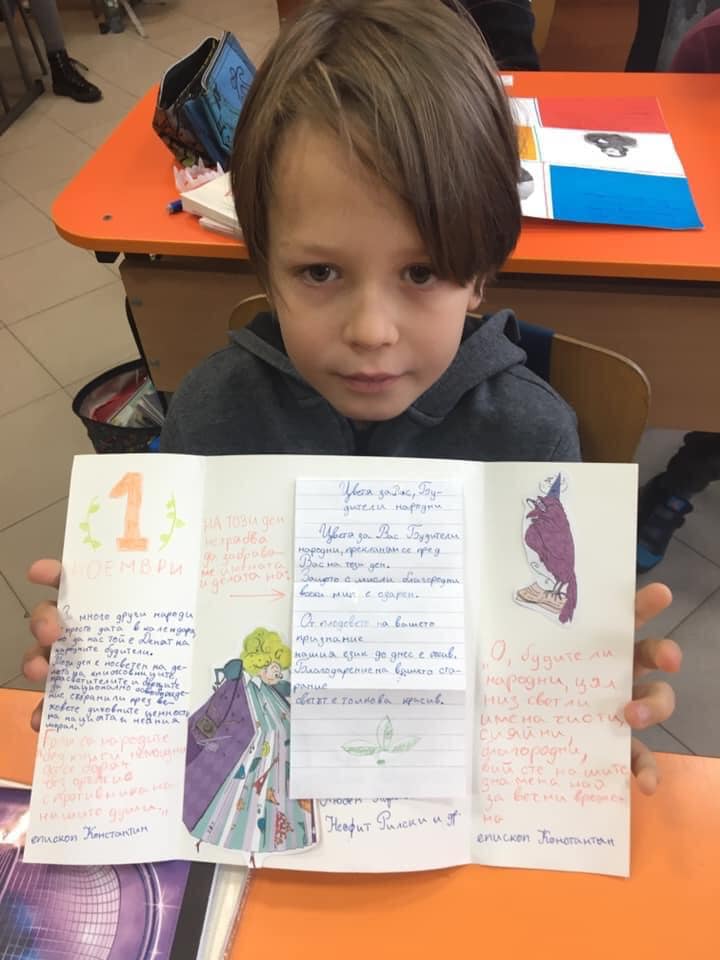 1
НОЕМВРИ
За много други народи
просто дата в календара,
но за нас той е Денят на
народните будители.
Този ден е посветен на де-
лото на книжовниците,
просветителите и борците
за национално освобожде-
ние съхранили през ве-
ковете духовните ценности
на нацията и нейния
морал.
Голи са народите
без книги, немощни
да се борят
без оръжие
с противника на
нашите души."
епископ Константин
НА ТОЗИ ДЕН
не трябва
да забравя-
ме имената
и делата на:
Цветя за Вас, Бу-
дители народни
Цветя за Вас Будители
народни, прекланям се пред
Вас на този ден.
Защото с мисли благородни
всеки миг е озарен.
От плодовете на вашето
признание
нашия език до днес е жив.
Благодарение на вашето ста-
рание
светът е толкова красив.
Неофит Рилски и др.
„О, будители
народни, цял
низ светли
имена чисти,
сияйни,
благородни,
вий сте нашите
знамена най
за вечни времен-
на
епископ Константин